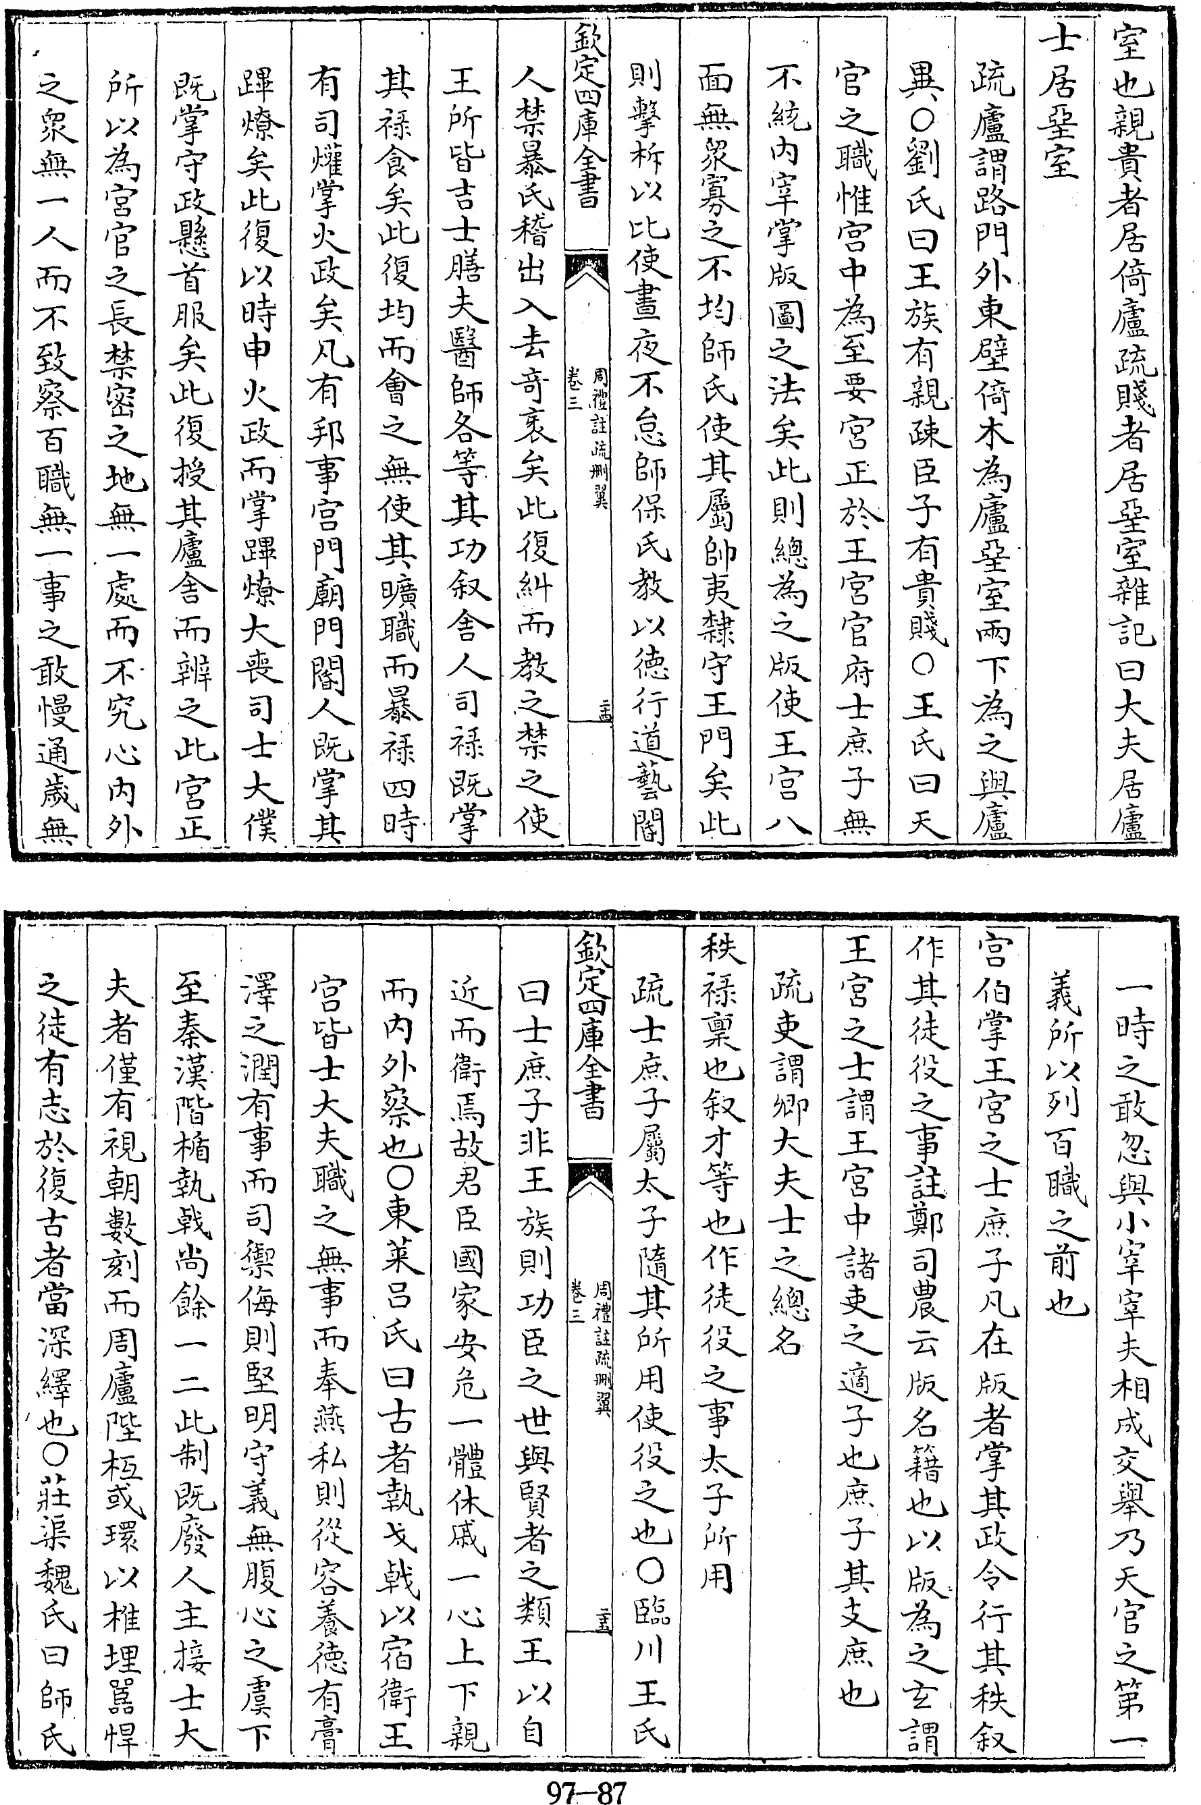 室也親貴者居倚廬疏賤者居堊室雜記曰大夫居廬
士居堊室
疏廬謂路門外東壁倚木為廬堊室兩下為之與廬
異○劉氏曰王族有親疎臣子有貴賤○王氏曰天
官之職惟宫中為至要宫正於王宫官府士庶子無
不統内宰掌版圖之法矣此則總為之版使王宫八
面無衆寡之不均師氏使其屬帥夷隸守王門矣此
則擊柝以比使晝夜不怠師保氏教以徳行道藝閽
欽定四庫全書
周禮註疏刪翼
卷三
二十四
人禁暴氏稽出入去奇衺矣此復糾而教之禁之使
王所皆吉士膳夫醫師各等其功叙舍人司禄既掌
其禄食矣此復均而會之無使其曠職而暴禄四時
有司爟掌火政矣凡有邦事宫門廟門閽人既掌其
蹕燎矣此復以時申火政而掌蹕燎大喪司士大僕
既掌守政懸首服矣此復授其廬舍而辨之此宫正
所以為宫官之長禁密之地無一處而不究心内外
之衆無一人而不致察百職無一事之敢慢通歲無
一時之敢忽與小宰宰夫相成交舉乃天官之第一
義所以列百職之前也
宫伯掌王宫之士庶子凡在版者掌其政令行其秩叙
作其徒役之事註鄭司農云版名籍也以版為之玄謂
王宫之士謂王宫中諸吏之適子也庶子其支庶也
疏吏謂卿大夫士之總名
秩禄禀也叙才等也作徒役之事太子所用
疏士庶子屬太子隨其所用使役之也○臨川王氏
欽定四庫全書
周禮註疏刪翼
卷三
二十五
曰士庶子非王族則功臣之世與賢者之類王以自
近而衛焉故君臣國家安危一體休戚一心上下親
而内外察也○東萊吕氏曰古者執戈戟以宿衛王
宫皆士大夫職之無事而奉燕私則從容養徳有膏
澤之潤有事而司禦侮則堅明守義無腹心之虞下
至秦漢階楯執戟尚餘一二此制既廢人主接士大
夫者僅有視朝數刻而周廬陛枑或環以椎埋嚚悍
之徒有志於復古者當深繹也○莊渠魏氏曰師氏
97—87